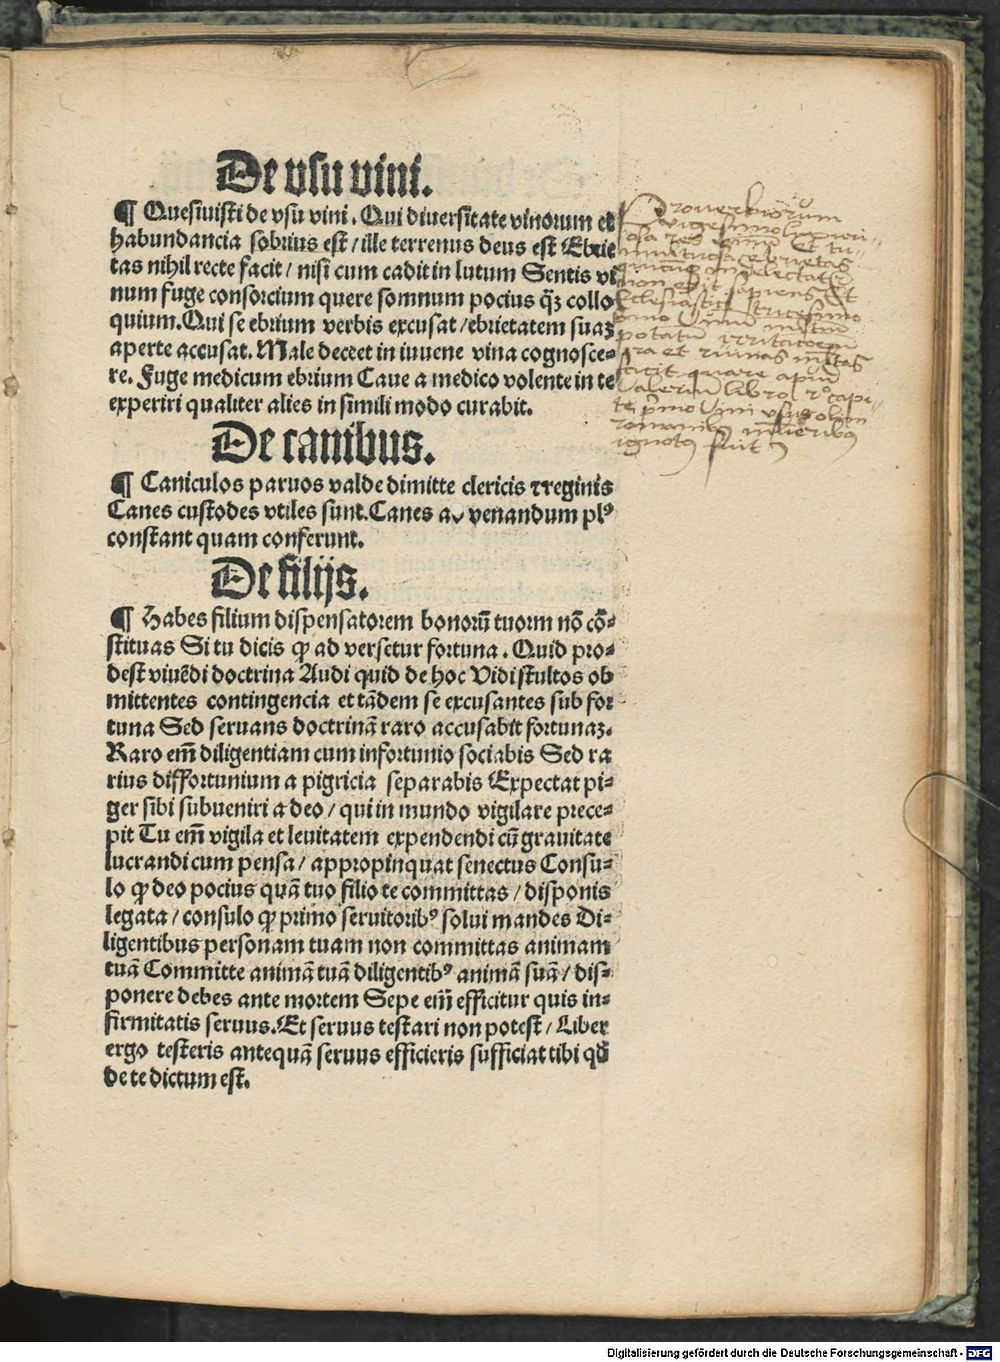 De vsu vini.
¶ Quesiuisti de vsu vini. Qui diuersitate vinorum et
habundancia sobrius est / ille terrenus deus est Ebrie
tas nihil recte facit / nisi cum cadit in lutum Sentis vi
num fuge consorcium quere somnum pocius qꝫ collo
quium. Qui se ebrium verbis excusat / ebrietatem suaꝫ
aperte accusat. Male decet in iuuene vina cognosce-
re. Fuge medicum ebrium Caue a medico volente in te
experiri qualiter alies in simili modo curabit.
De canibus.
¶ Caniculos paruos valde dimitte clericis ⁊ reginis
Canes custodes vtiles sunt. Canes ad venandum plꝰ
constant quam conferunt.
De filijs.
¶ Habes filium dispensatorem bonorū tuorm nō cō-
stituas Si tu dicis ꝙ ad versetur fortuna. Quid pro-
dest viuēdi doctrina Audi quid de hoc Vidi stultos ob
mittentes contingencia et tādem se excusantes sub for
tuna Sed seruans doctrinā raro accusabit fortunaꝫ.
Raro em̄ diligentiam cum infortunio sociabis Sed ra
rius diffortunium a pigricia separabis Expectat pi-
ger sibi subueniri a deo / qui in mundo vigilare prece-
pit Tu em̄ vigila et leuitatem expendendi cū grauitate
lucrandi cum pensa / appropinquat senectus Consu-
lo ꝙ deo pocius quā tuo filio te committas / disponis
legata / consulo ꝙ primo seruitoribꝰ solui mandes Di-
ligentibus personam tuam non committas animam
tuā Committe animā tuā diligentibꝰ animā suā / dis-
ponere debes ante mortem Sepe em̄ efficitur quis in-
firmitatis seruus. Et seruus testari non potest / Liber
ergo testeris antequā seruus efficieris sufficiat tibi qđ
de te dictum est.
Prouerbiorum
vigesimo luxuri-
osa res vinum Et tu-
multuosa ebrietas
quicunque delectatur
non erit sapiens Et
Ecclesiastici tricesimo
primo Vinum multum
potatum irritationem
ira et ruinas multas
facit quare apud
Valerium libro 2º capi-
te primo Vini usus olim
romanibus mulieribus
ignotus fuit
Digitalisierung gefördert durch die Deutsche Forschungsgemeinschaft - DFG